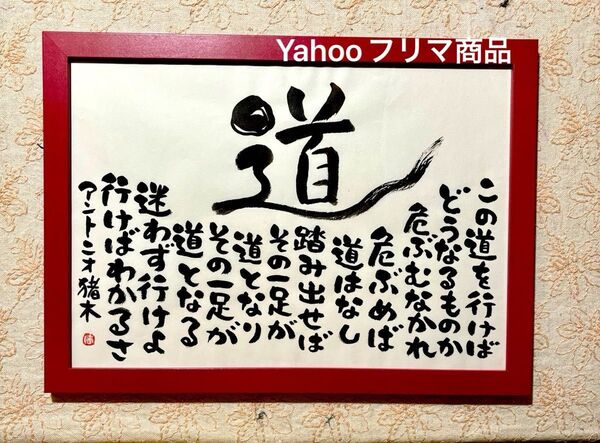 Yahooフリマ商品
道
この道を行けば
どうなるものか
危ぶむなかれ
危ぶめば
道はなし
踏み出せば
その一足が
道となり
その一足が
道となる
迷わず行けよ
行けばわかるさ
アントニオ猪木